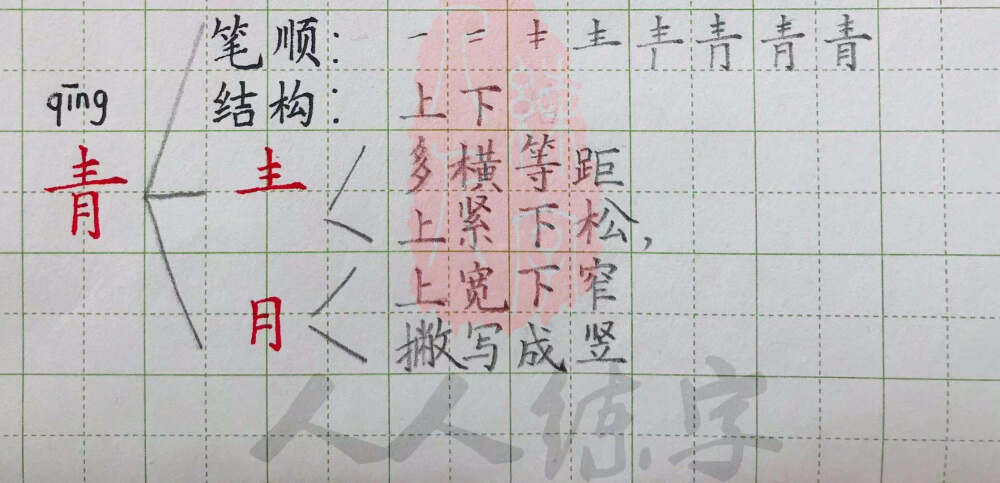 笔顺: 一 二 キ 龶 青
结构: 上下
qīng
多横等距
青 龶
上紧下松,
上宽下窄
月
撇写成竖
人人练字